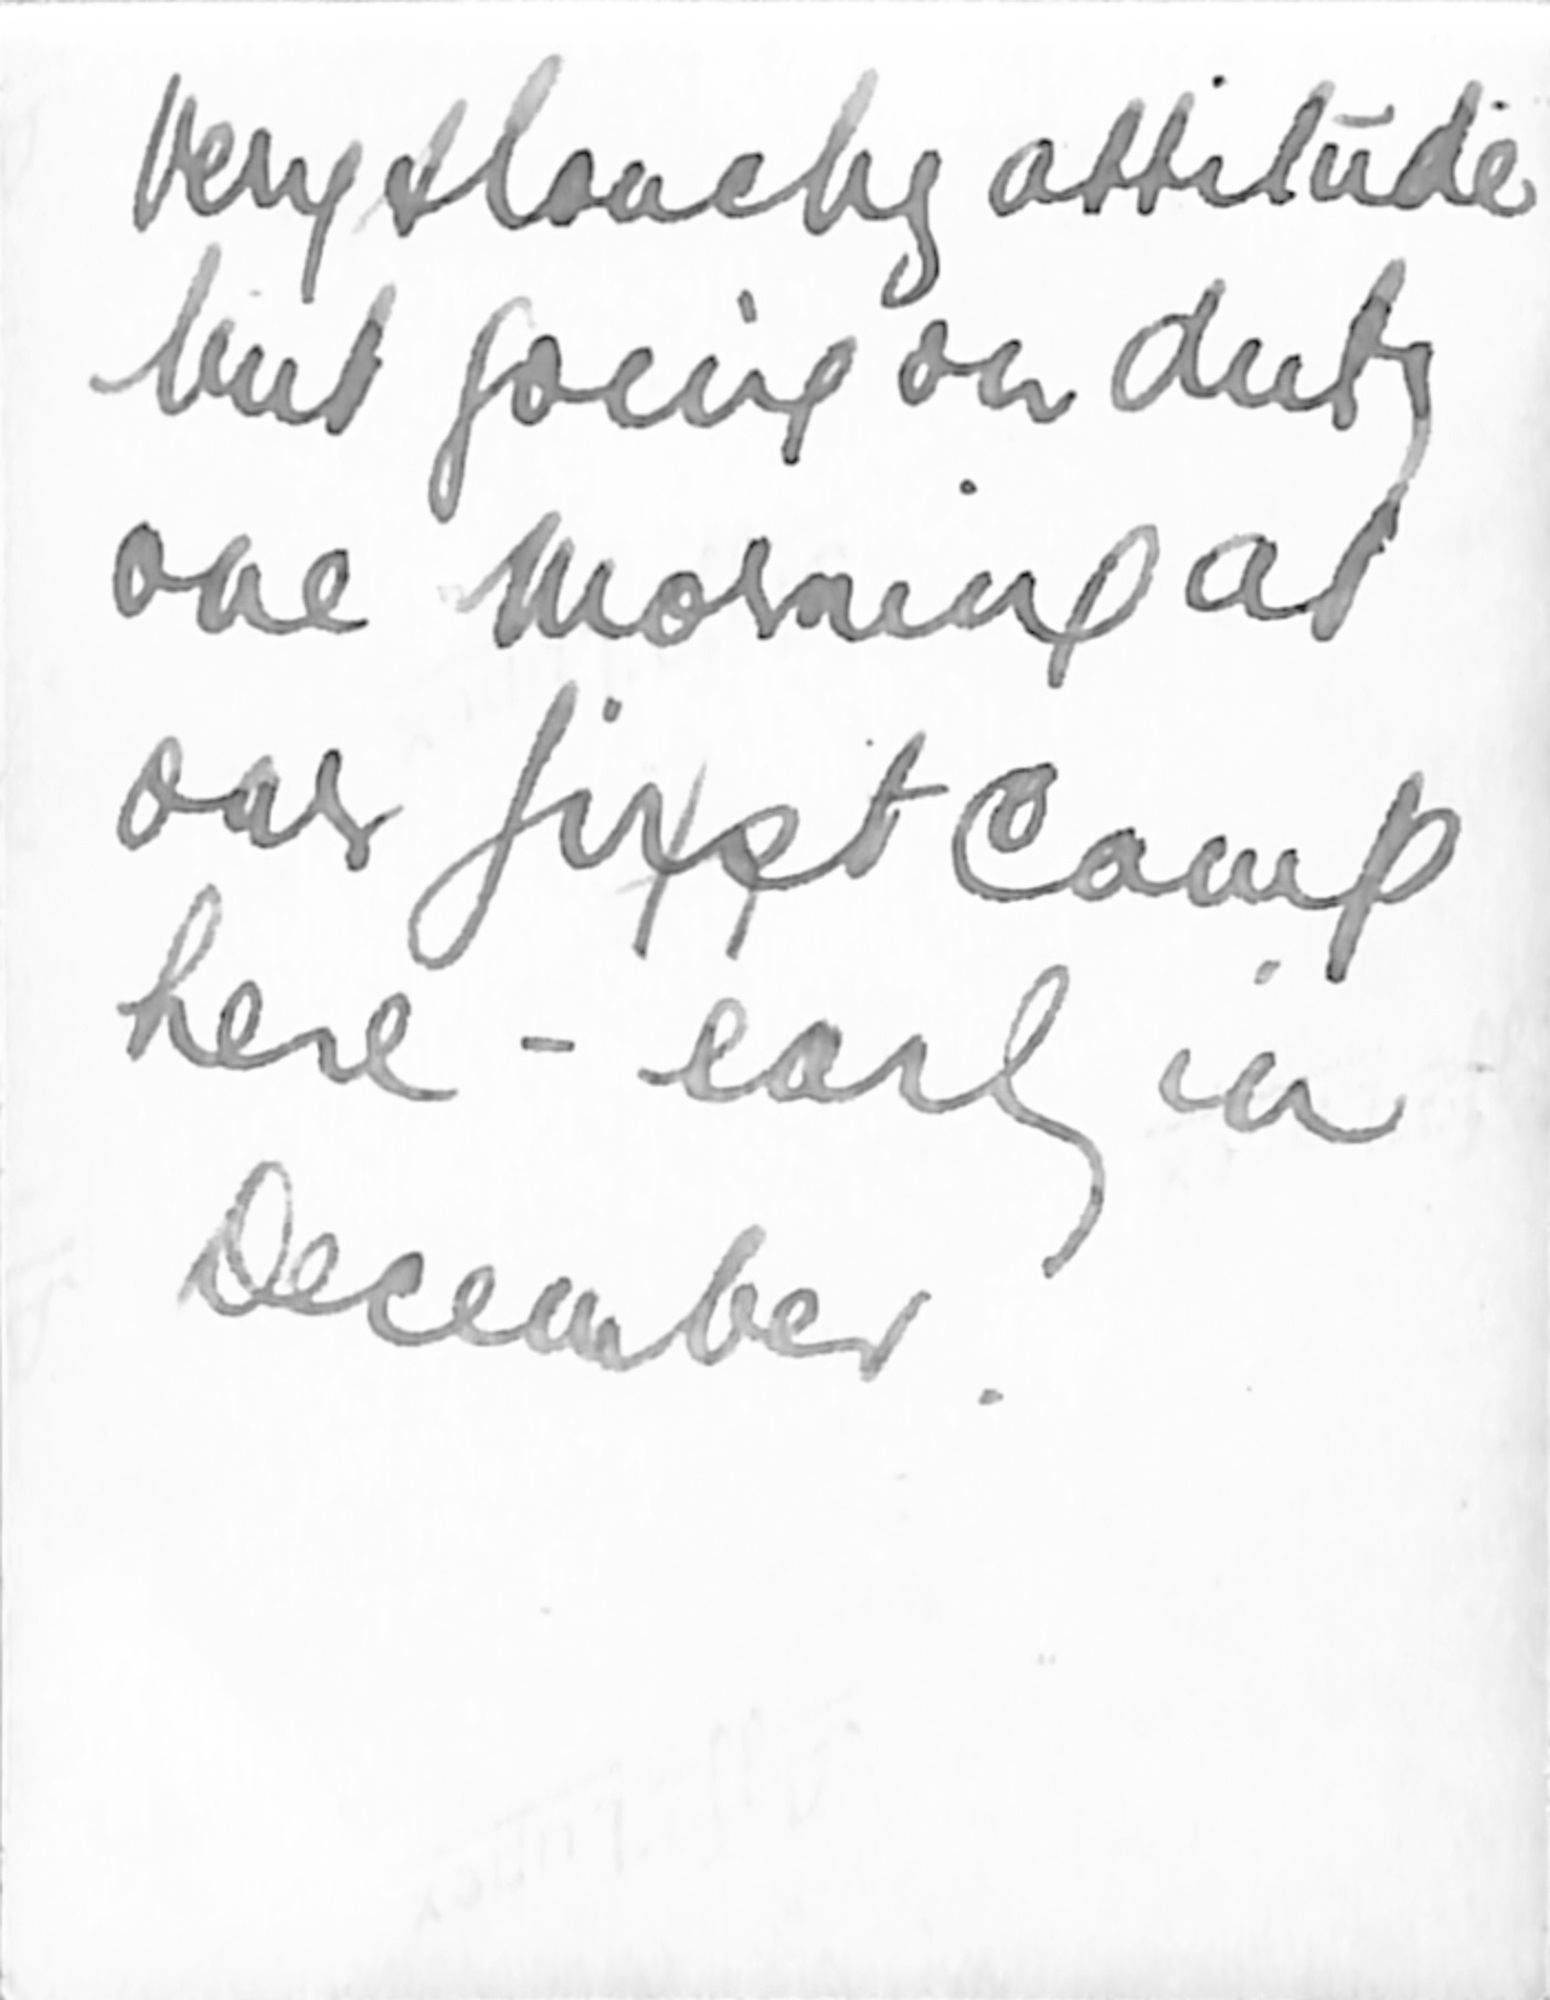 Very slouchy attitude
but going on duty
one morning at
our first Camp
here - early in
December.